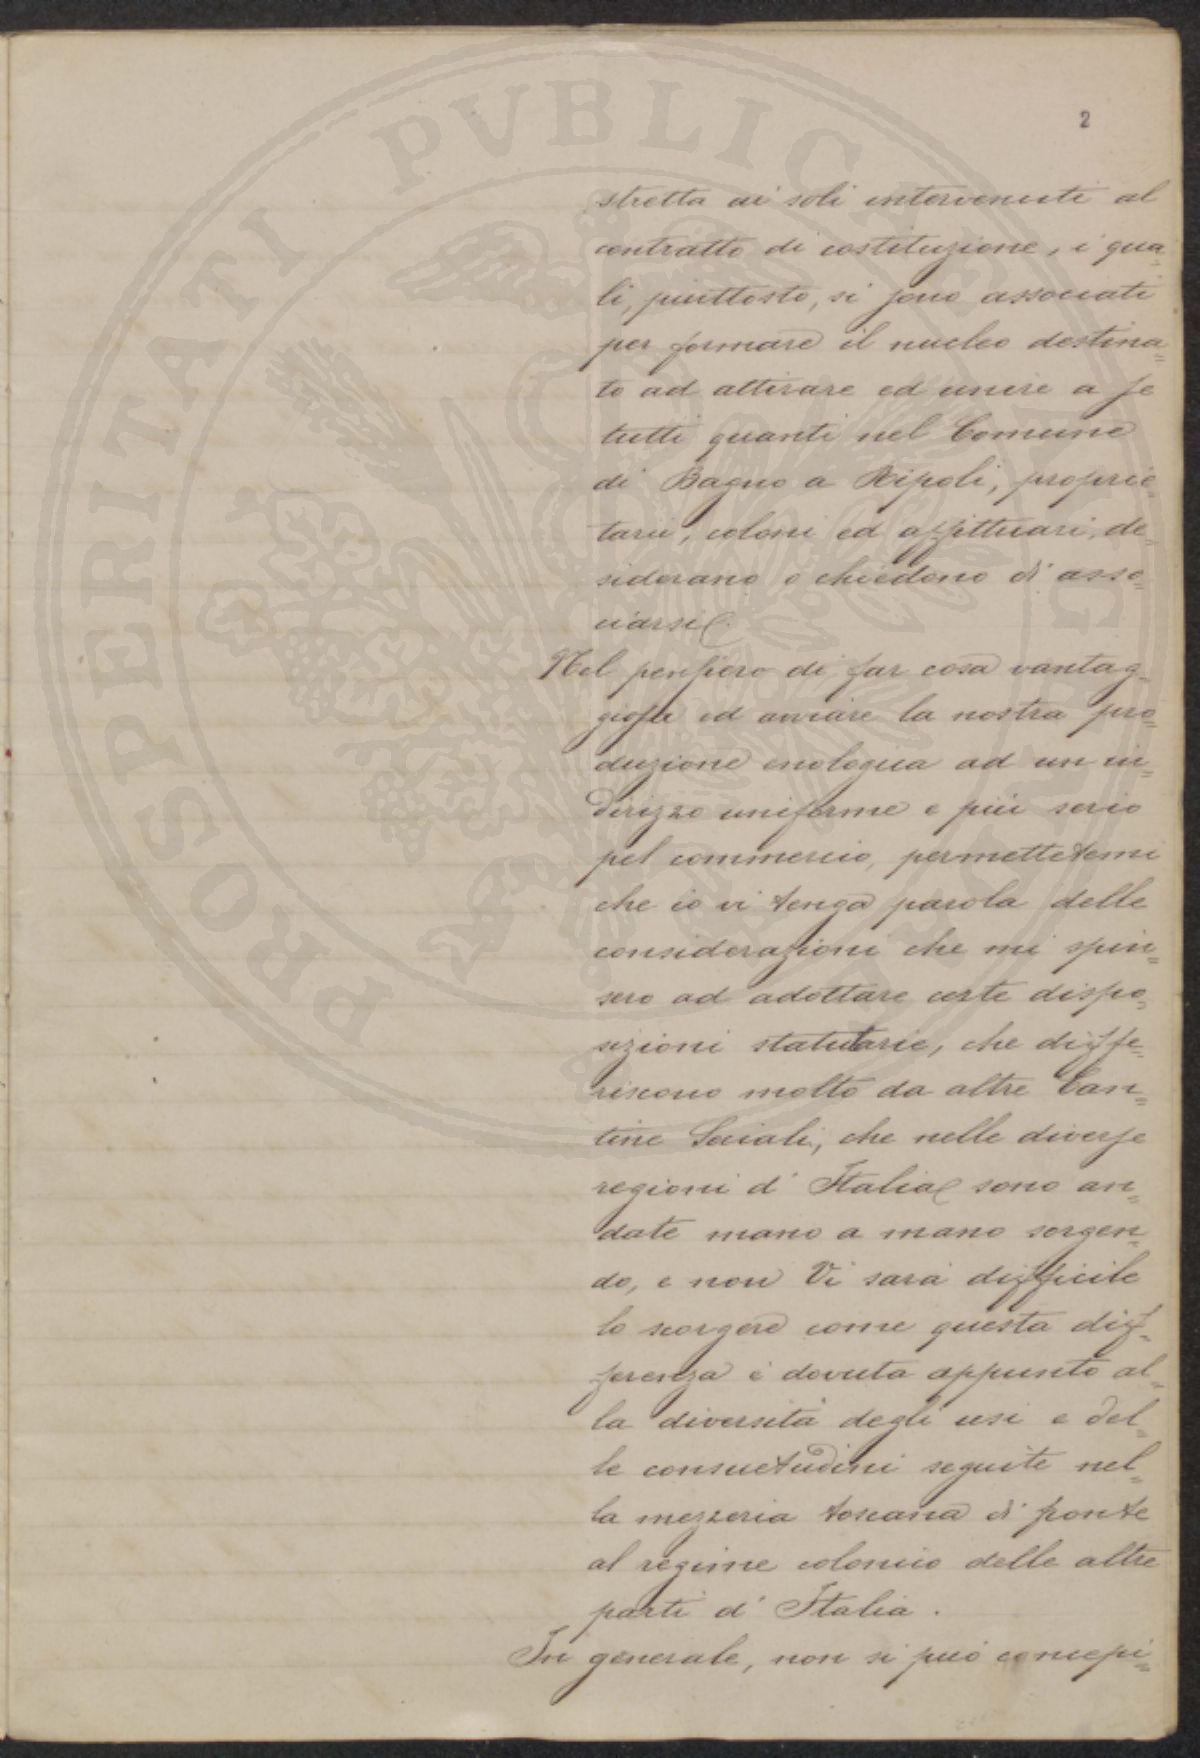 2
stretta ai soli intervenuti al
contratto di costituzione, i qua=
li, piuttosto, si sono associati
per formare il nucleo destina=
to ad attirare ed unire a se
tutti quanti nel Comune
di Bagno a Ripoli, proprie=
tarii, coloni ed affittuari, de=
siderano o chiedono di asso=
ciarsi.
Nel pensiero di far cosa vantag=
giosa ed avviare la nostra pro=
duzione enologica ad un in=
dirizzo uniforme e più serio
pel commercio, permettetemi
che io vi tenga parola delle
considerazioni che mi spin=
sero ad adottare certe dispo=
sizioni statutarie, che diffe=
riscono molto da altre Can=
tine Sociali, che nelle diverse
regioni d'Italia sono an=
date mano a mano sorgen=
do, e non Vi sarà difficile
lo scorgere come questa dif=
ferenza è dovuta appunto al=
la diversità degli usi e del=
le consuetudini seguite nel=
la mezzeria toscana di fronte
al regime colonico delle altre
parti d'Italia.
In generale, non si può concepi=
PROSPERITATI PVBLICAE